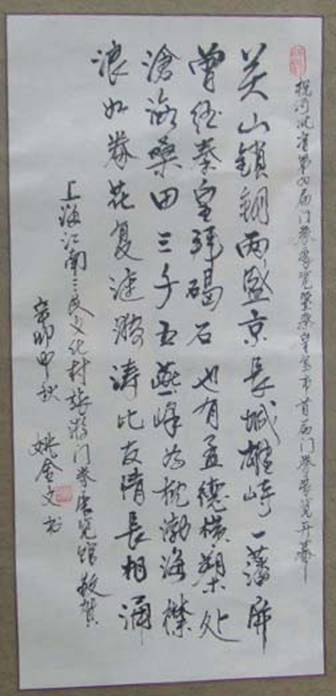 祝河北省第四届门券展览暨秦皇岛市首届门券展览开幕
关山鎖鑰两盛京長城雄峙一藩屏
曾经秦皇碑碣石也有孟德横槊处
滄海桑田三千五燕峰为枕渤海襟
浪如券花复涟漪涛比友情長相涌
上海江南三民文化村旅游门券展览馆敬贺
辛卯中秋 姚金文书